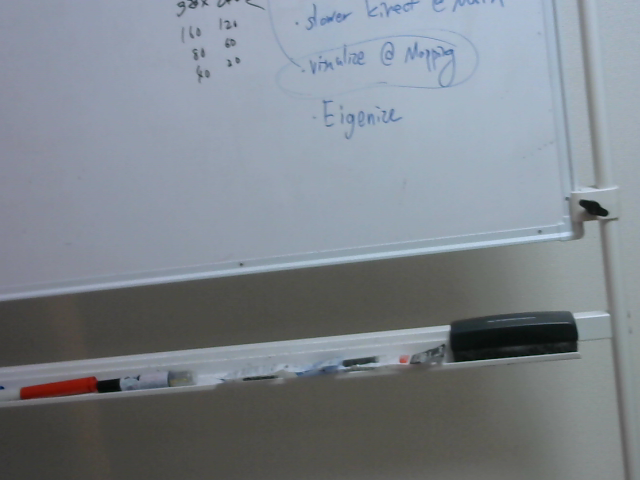 320 240
160 120
80 60
40 30
· slower kinect @ Main
· visualize @ Mapping
· Eigenize